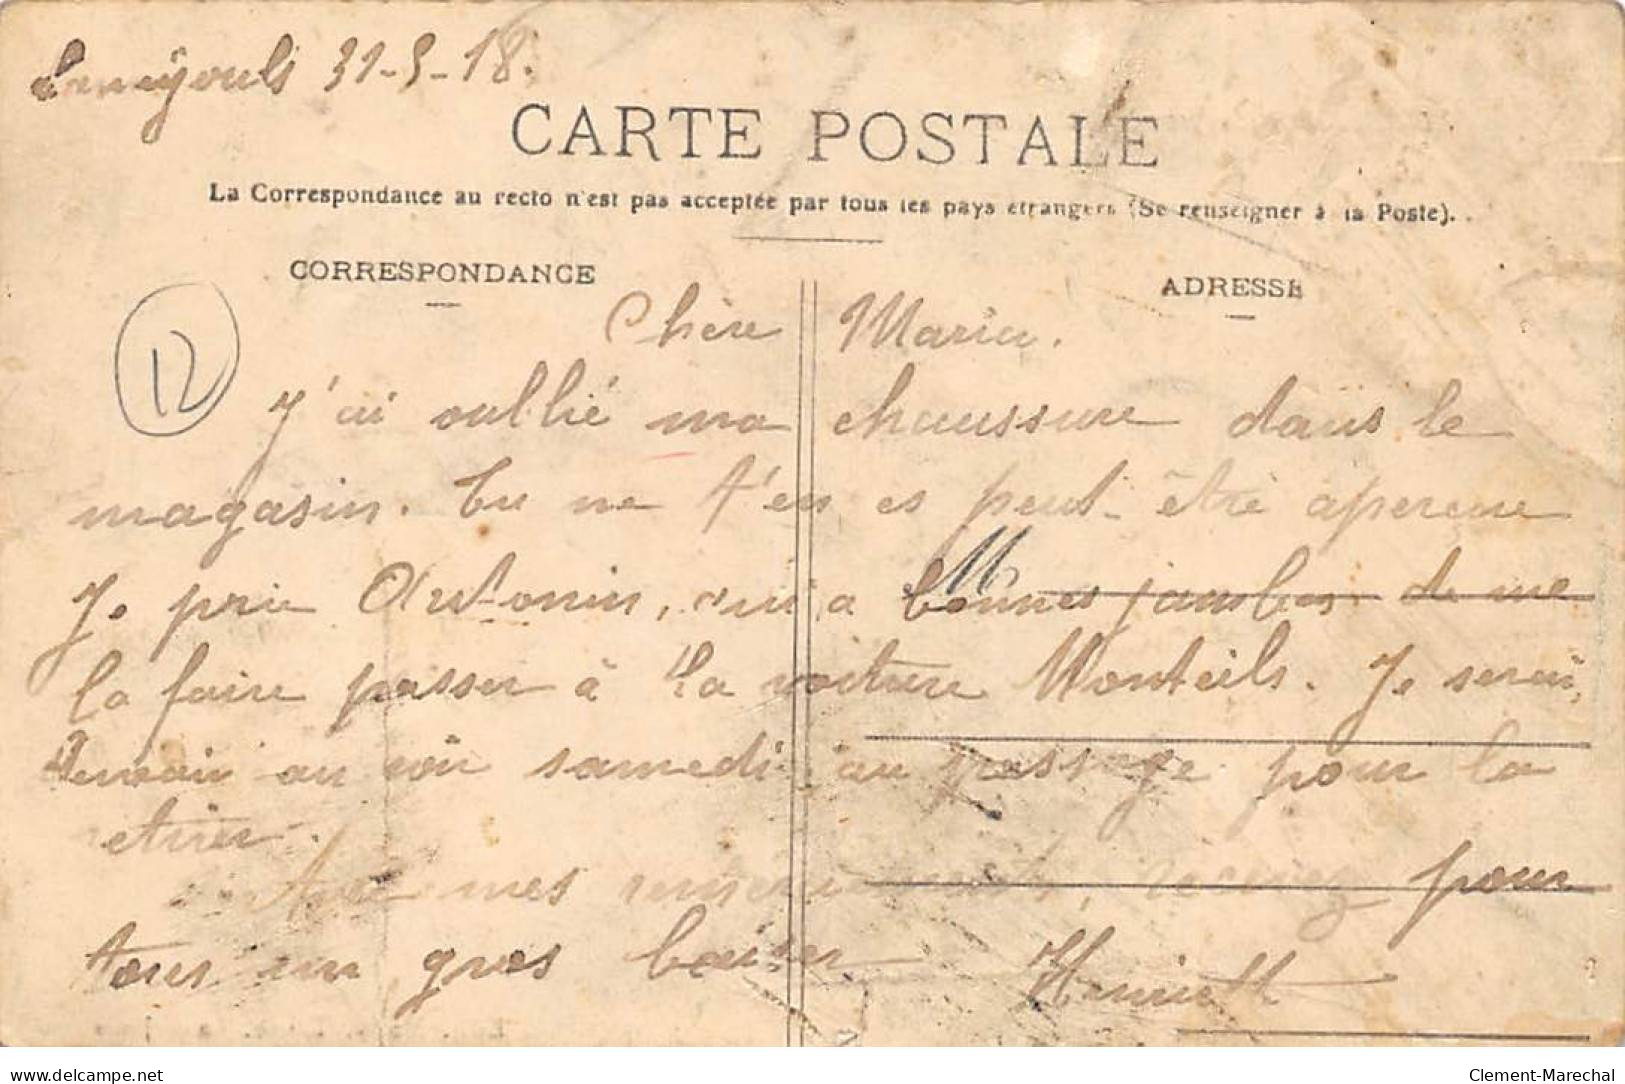 31-5-18.
CARTE POSTALE
La Correspondance au recto n'est pas acceptée par tous les pays étrangers (Se renseigner à la Poste).
CORRESPONDANCE
ADRESSE
12
Chère Maria.
J'ai oublié ma chaussure dans le
magasin. Tu ne t'en es peut-être aperçue
Je prie Antonin, qui a bonnes jambes de me
la faire passer à la voiture Monteils. Je serai
demain au soir samedi, au passage pour la
retirer.
Avec mes remerciements, recevez pour
tous un gros baiser Henriette
delcampe.net
Clement-Marechal